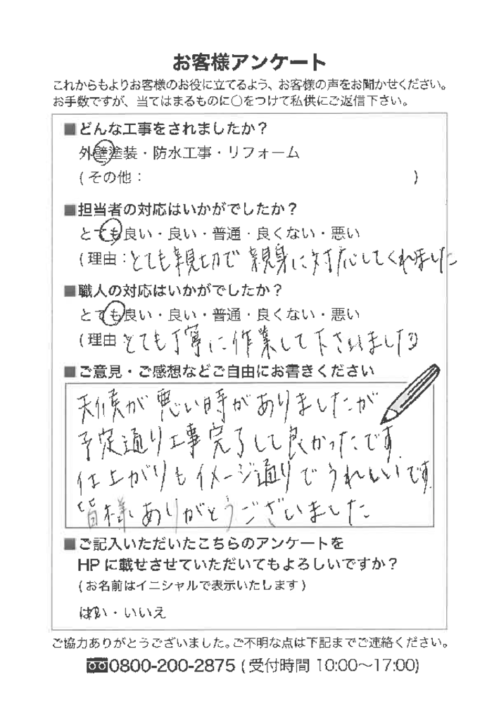 お客様アンケート
これからもよりお客様のお役に立てるよう、お客様の声をお聞かせください。
お手数ですが、当てはまるものに○をつけて私供にご返信下さい。
■どんな工事をされましたか？
外壁塗装・防水工事・リフォーム
(その他： )
■担当者の対応はいかがでしたか？
とても良い・良い・普通・良くない・悪い
(理由：とても親切で親身に対応してくれました
■職人の対応はいかがでしたか？
とても良い・良い・普通・良くない・悪い
(理由 とても丁寧に作業して下さいました
■ご意見・ご感想などご自由にお書きください
天候が悪い時がありましたが
予定通り工事完了して良かったです
仕上がりもイメージ通りでうれしいです
皆様ありがとうございました
■ご記入いただいたこちらのアンケートを
HPに載せさせていただいてもよろしいですか？
(お名前はイニシャルで表示いたします)
はい・いいえ
ご協力ありがとうございました。ご不明な点は下記までご連絡ください。
0800-200-2875 (受付時間 10:00～17:00)